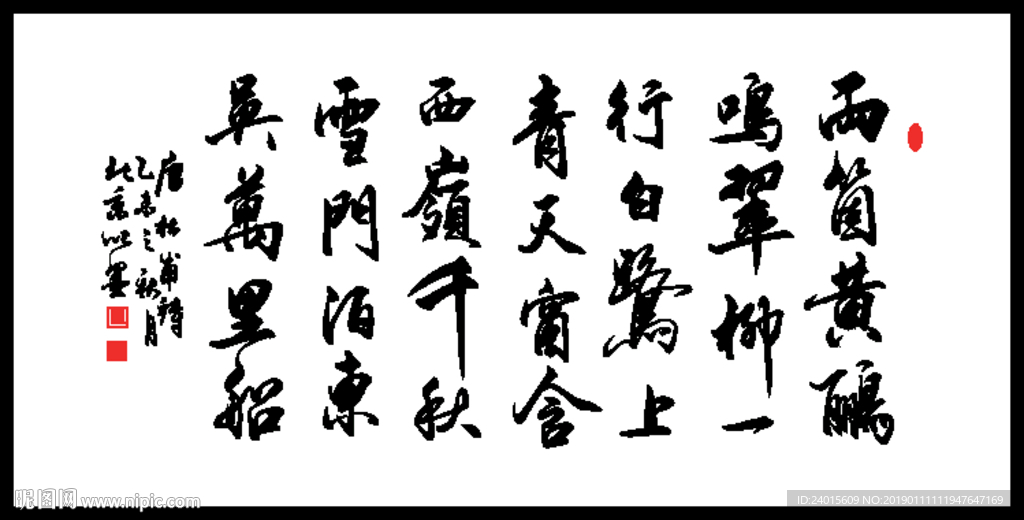 兩箇黃鸝
鳴翠柳一
行白鷺上
青天窗含
西嶺千秋
雪門泊東
吳萬里船
唐杜甫詩
乙未之秋月
昵图网 www.nipic.com
ID:24015609 NO:20190111111947647169